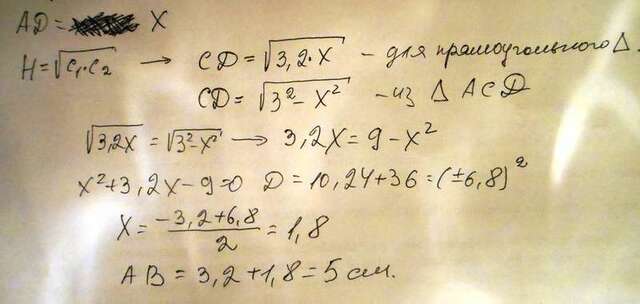 AD = X
H = √c₁·c₂ → CD = √3,2·X – для прямоугольного Δ.
CD = √3² – X² – из Δ ACD
√3,2X = √3² – X² → 3,2X = 9 – X²
X² + 3,2X – 9 = 0 D = 10,24 + 36 = (±6,8)²
X = (–3,2 + 6,8)/2 = 1,8
AB = 3,2 + 1,8 = 5 см.